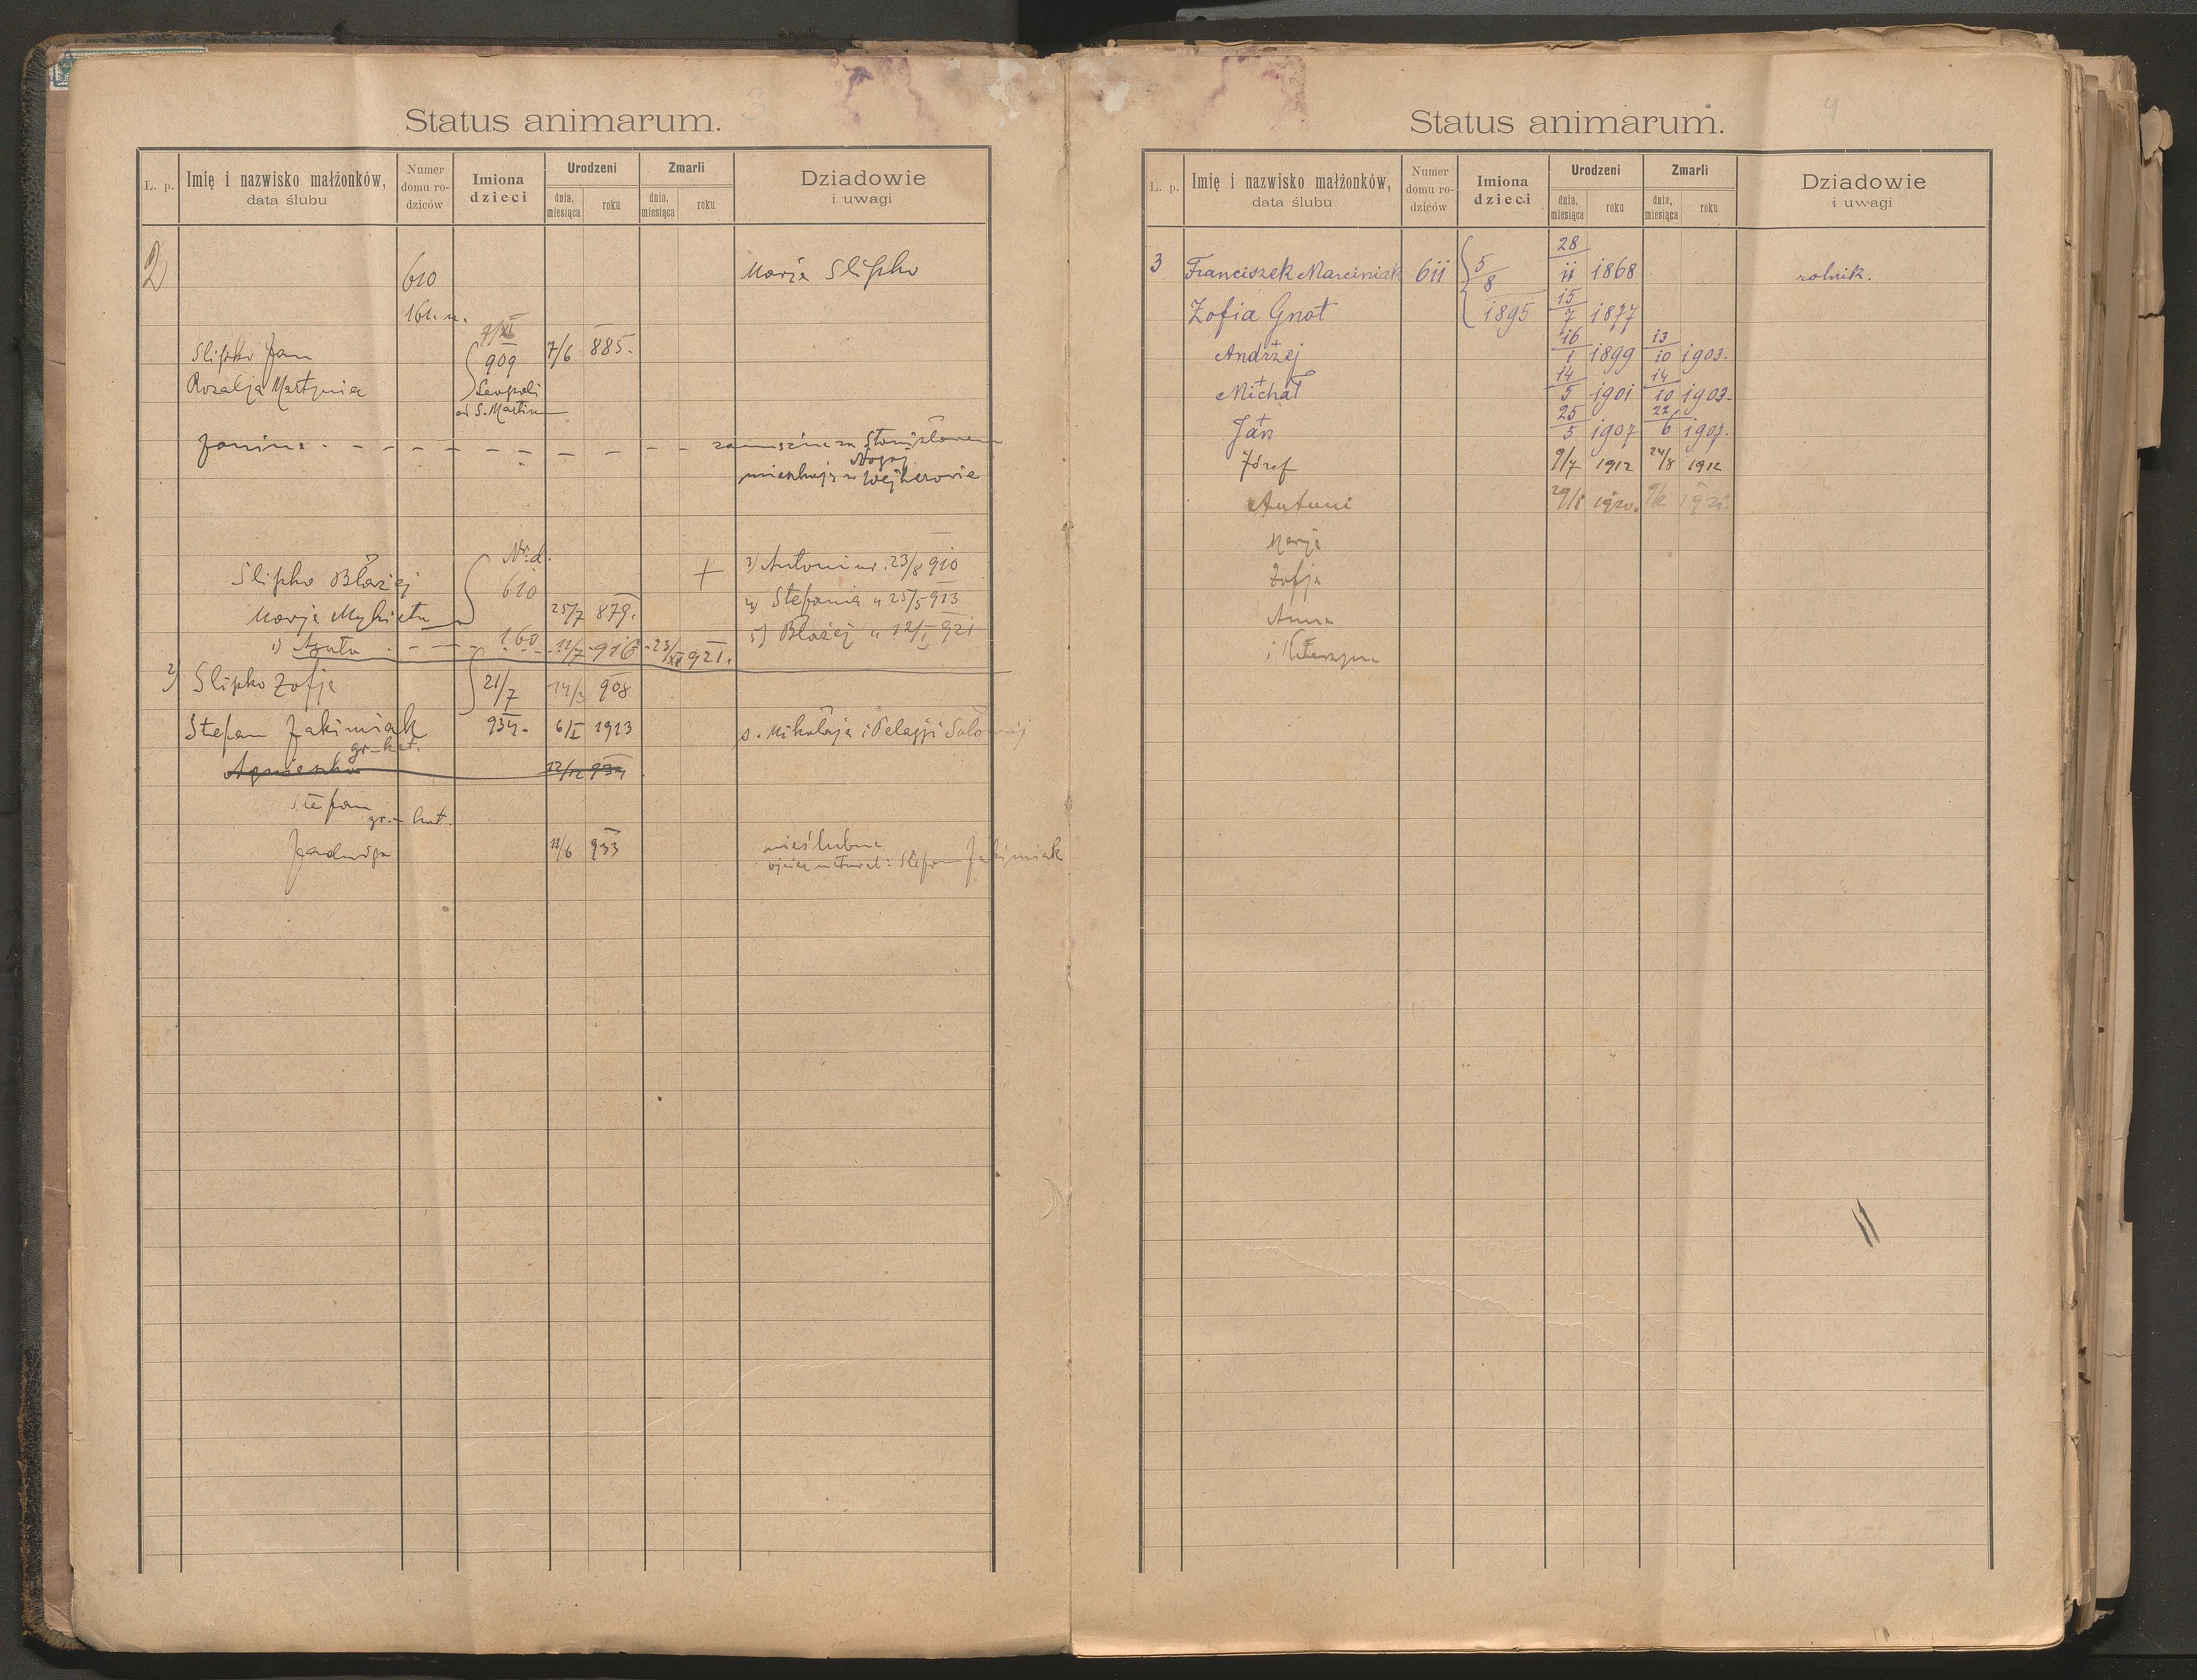 Status animarum. 3
L. p. | Imię i nazwisko małżonków, data ślubu | Numer domu rodziców | Imiona dzieci | Urodzeni dnia, miesiąca | roku | Zmarli dnia, miesiąca | roku | Dziadowie i uwagi
2 610 Marja Slipko
161. n.
7/XI
Slipko Jan 909 7/6 885.
Rozalja Martyniec Leopoli
od S. Martin
Janina - - - - - zamężna za Stanisławem
Nogaj
mieszkają w Wejherowie
Nr. d. + 3) Antoni ur. 23/8 910
Slipko Błażej 610 4) Stefania " 25/5 913
Marja Mykieta 25/7 879. 5) Błażej " 12/I 921
1) Agata - - - 160 - 11/7 - 916 - 23/XI 921.
2) Slipko Zofja 21/7 14/3 908
Stefan Jakimiak 934. 6/I 1913 s. Mikołaja i Pelagji Sołowij
gr-kat.
Agnieszka 12/12 934
Stefan
gr.-kat.
Jadwiga 11/6 933 nieślubne
ojciec natural: Stefan Jakimiak
Status animarum. 4
L. p. | Imię i nazwisko małżonków, data ślubu | Numer domu rodziców | Imiona dzieci | Urodzeni dnia, miesiąca | roku | Zmarli dnia, miesiąca | roku | Dziadowie i uwagi
3 Franciszek Marciniak 611 5/8 28/11 1868 rolnik.
Zofia Gnot 1895 15/7 1877
+ Andrzej 16/1 1899 13/10 1903.
+ Michał 14/5 1901 14/10 1903.
+ Jan 25/5 1907 22/6 1907.
Józef 9/7 1912 24/8 1912
Antoni 29/8 1920. 9/2 1921.
Marja
Zofja
Anna
i Katarzyna